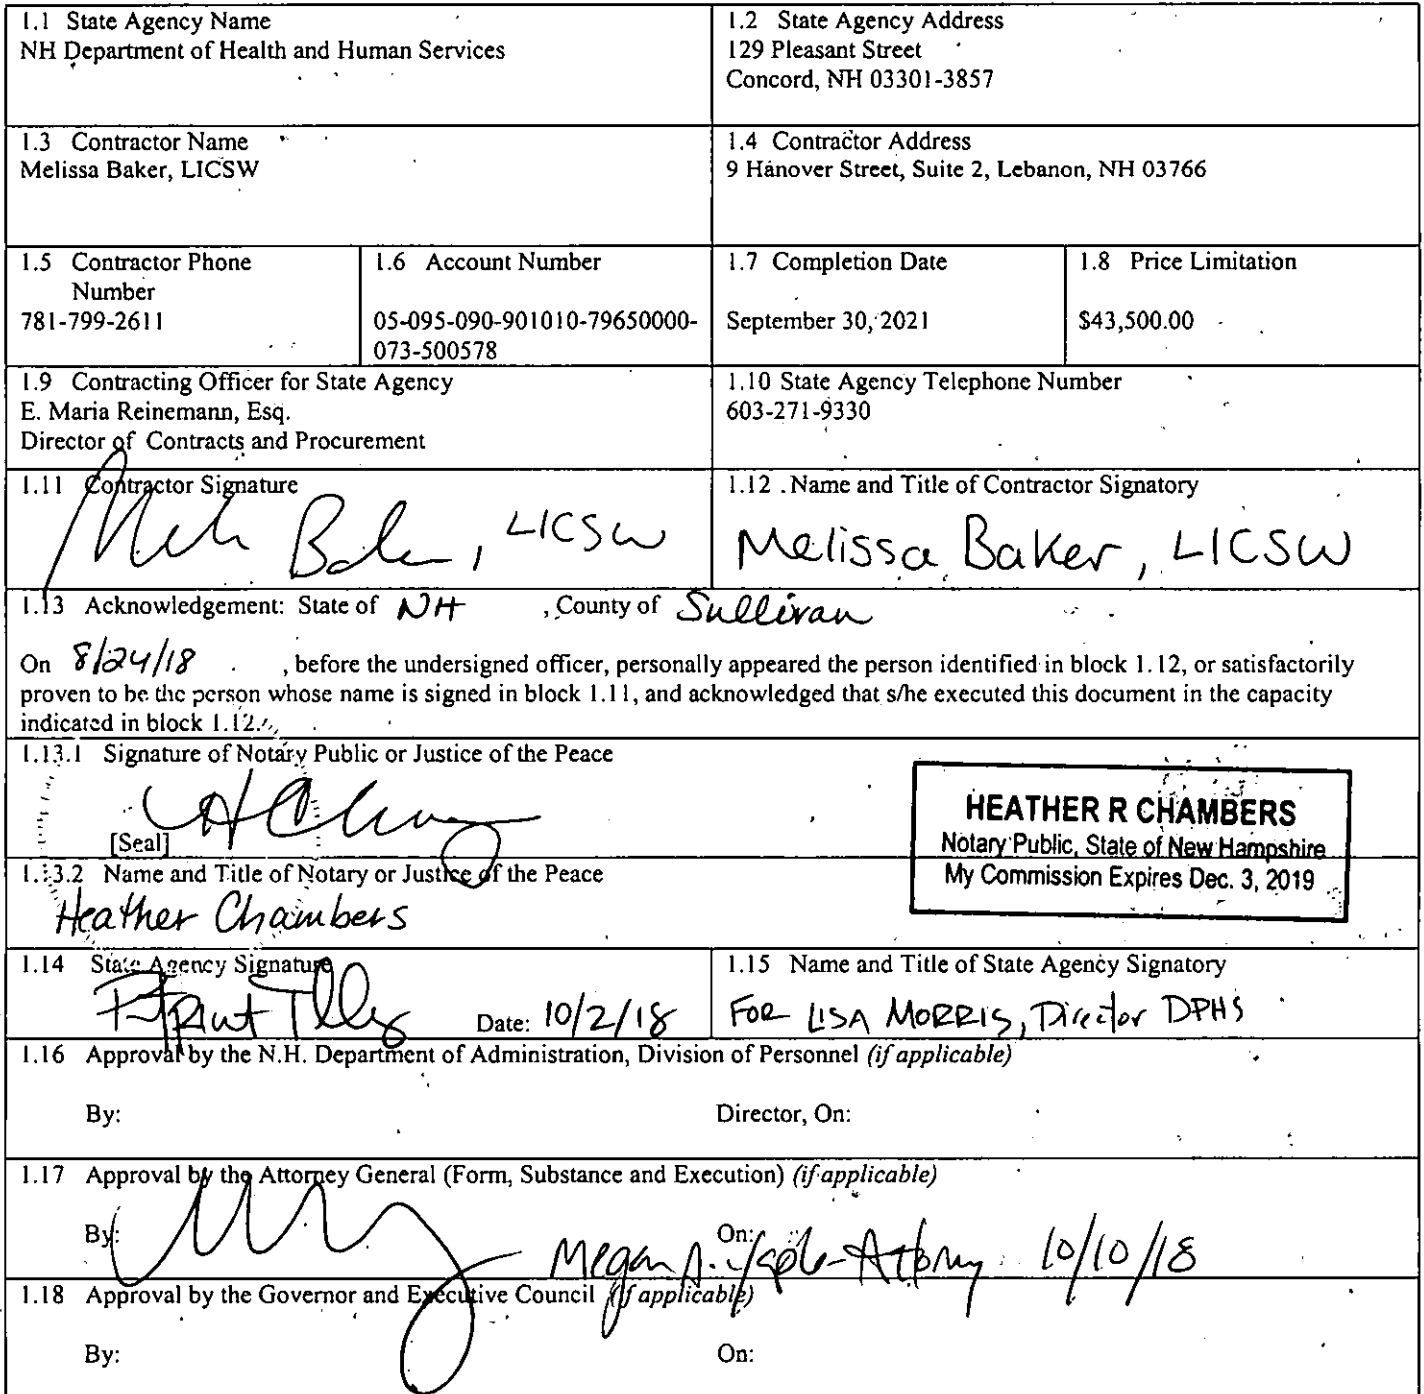 1.1 State Agency Name
NH Department of Health and Human Services
1.2 State Agency Address
129 Pleasant Street
Concord, NH 03301-3857
1.3 Contractor Name
Melissa Baker, LICSW
1.4 Contractor Address
9 Hanover Street, Suite 2, Lebanon, NH 03766
1.5 Contractor Phone
Number
781-799-2611
1.6 Account Number
05-095-090-901010-79650000-
073-500578
1.7 Completion Date
September 30, 2021
1.8 Price Limitation
$43,500.00
1.9 Contracting Officer for State Agency
E. Maria Reinemann, Esq.
Director of Contracts and Procurement
1.10 State Agency Telephone Number
603-271-9330
1.11 Contractor Signature
LICSW
1.12 Name and Title of Contractor Signatory
Melissa Baker, LICSW
1.13 Acknowledgement: State of NH , County of Sullivan
On 8/24/18 , before the undersigned officer, personally appeared the person identified in block 1.12, or satisfactorily
proven to be the person whose name is signed in block 1.11, and acknowledged that s/he executed this document in the capacity
indicated in block 1.12.
1.13.1 Signature of Notary Public or Justice of the Peace
[Seal]
HEATHER R CHAMBERS
Notary Public, State of New Hampshire
My Commission Expires Dec. 3, 2019
1.13.2 Name and Title of Notary or Justice of the Peace
Heather Chambers
1.14 State Agency Signature
Date: 10/2/18
1.15 Name and Title of State Agency Signatory
FOR LISA MORRIS, Director DPHS
1.16 Approval by the N.H. Department of Administration, Division of Personnel (if applicable)
By: Director, On:
1.17 Approval by the Attorney General (Form, Substance and Execution) (if applicable)
By: On: Megan A. 10/10/18
1.18 Approval by the Governor and Executive Council (if applicable)
By: On: